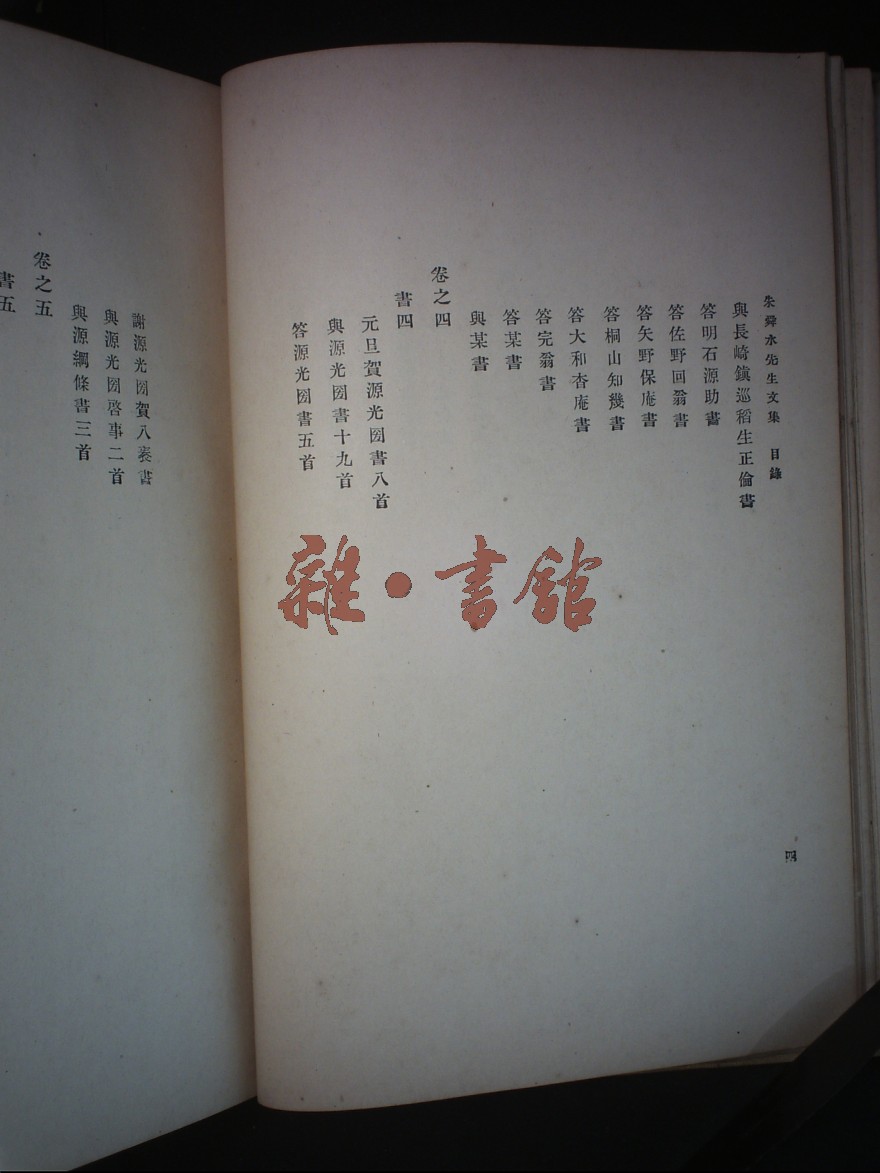 朱舜水先生文集　目錄
與長崎鎮巡稻生正倫書
答明石源助書
答佐野回翁書
答矢野保庵書
答桐山知幾書
答大和杏庵書
答完翁書
答某書
與某書
卷之四
書四
元旦賀源光圀書八首
與源光圀書十九首
答源光圀書五首
四
謝源光圀賀八袠書
與源光圀啓事二首
與源綱條書三首
卷之五
書五
雜・書館